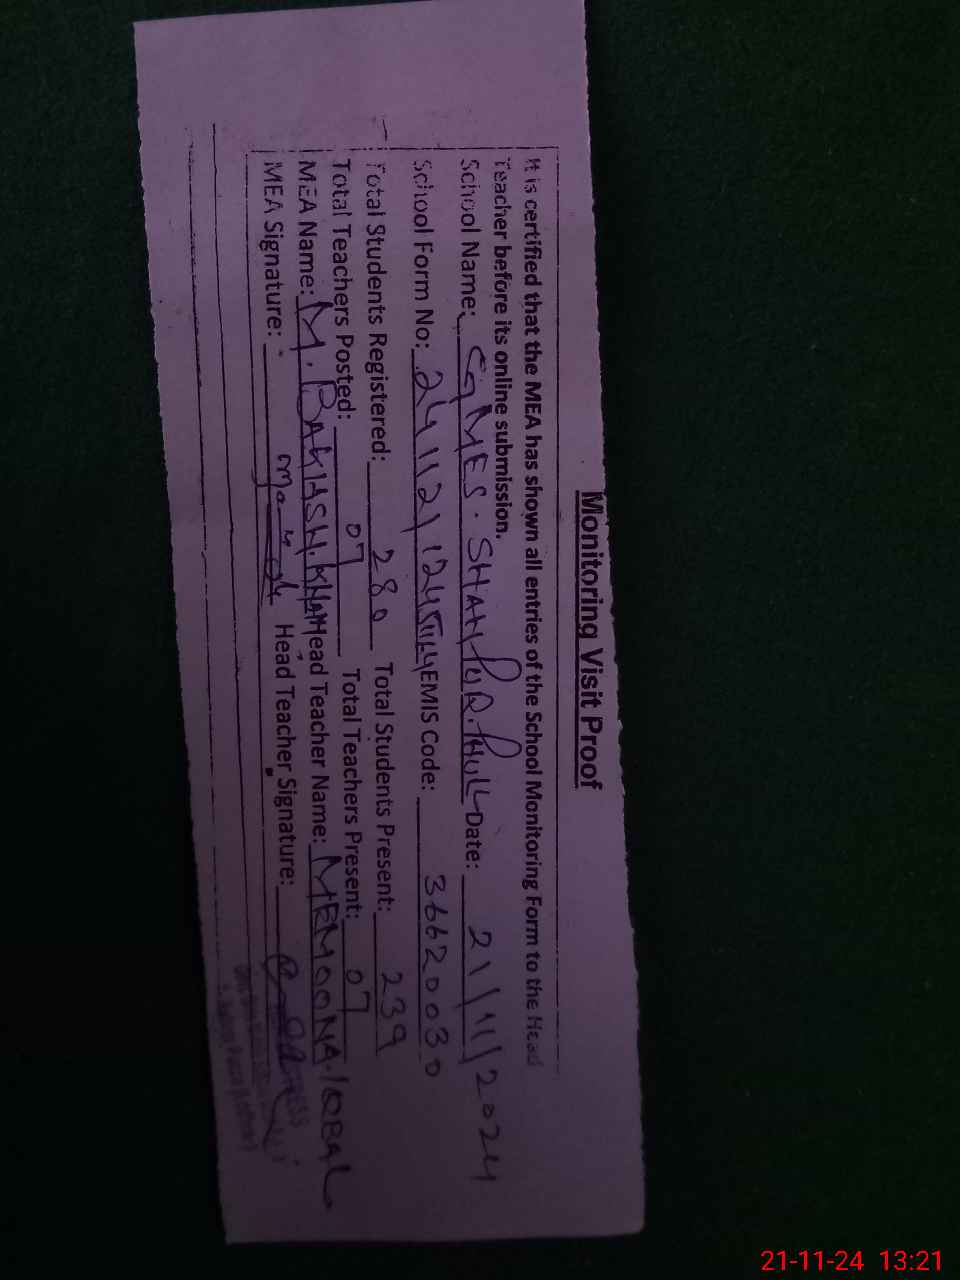 Monitoring Visit Proof
It is certified that the MEA has shown all entries of the School Monitoring Form to the Head
Teacher before its online submission.
School Name: GMES. SHAHPUR.PHULL Date: 21/11/2024
School Form No: EMIS Code: 36620030
Total Students Registered: 280 Total Students Present: 239
Total Teachers Posted: 07 Total Teachers Present: 07
MEA Name: M. BAKHSH.KHAN Head Teacher Name: MEMOONA.IQBAL
MEA Signature: Head Teacher Signature:
21-11-24 13:21